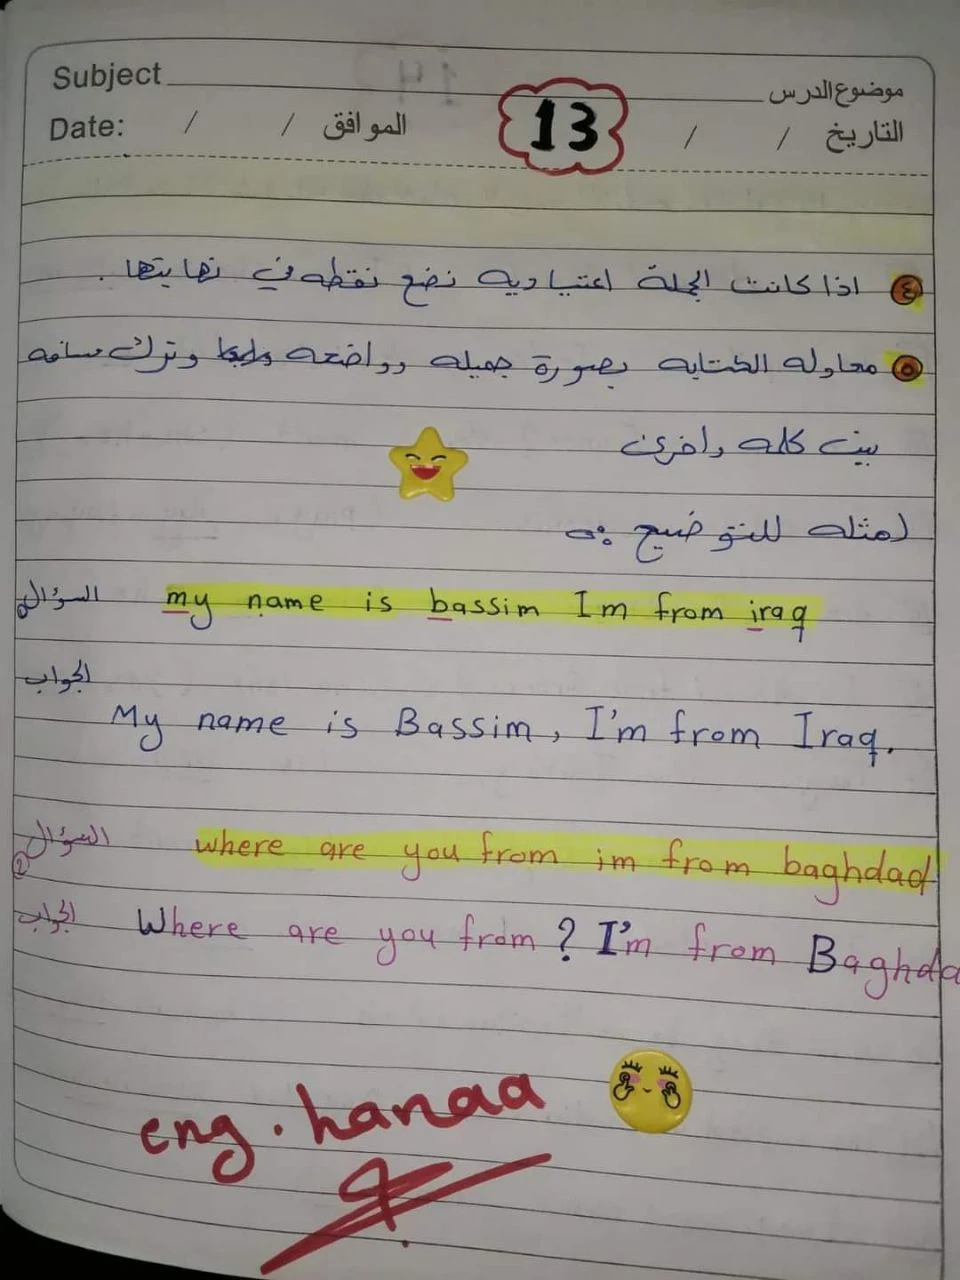 Subject موضوع الدرس
Date: / / الموافق 13 / / التاريخ
٤ اذا كانت الجملة اعتياديه نضع نقطه في نهايتها .
٥ محاوله الكتابه بصورة جميله وواضعه وترك مسافه
بين كلمه واخرى
امثله للتوضيح :-
السؤال my name is bassim Im from iraq
الجواب
My name is Bassim, I'm from Iraq.
السؤال where are you from im from baghdad
2
الجواب Where are you from ? I'm from Baghda
eng . hanaa